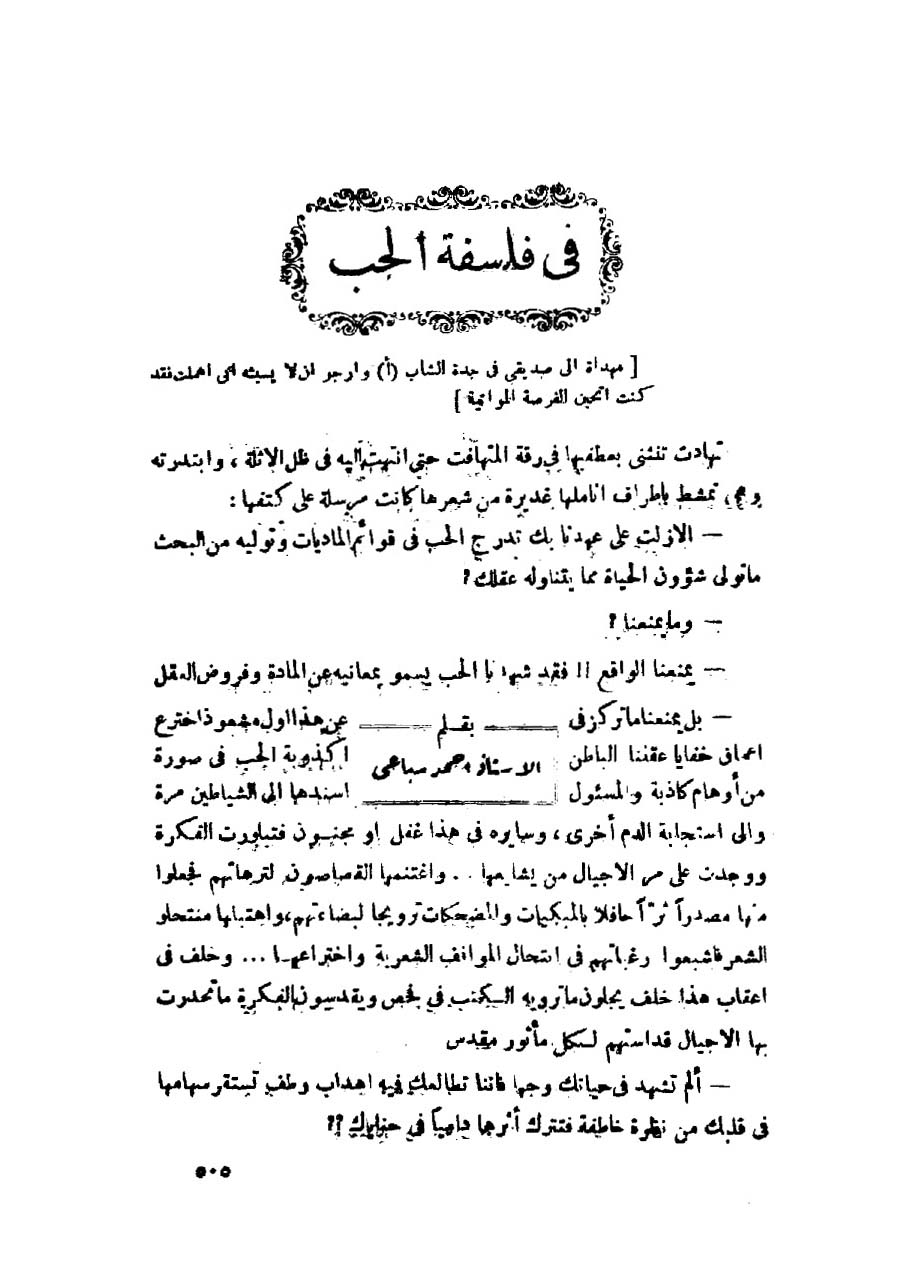 فى فلسفة الحب
[ مهداة الى صديقى فى جدة الشاب (أ) وارجو ان لا يسيئه انى اهملت نقد
كنت اتحين الفرصة المواتية ]
تهادت تنثنى بعطفيها فى رقة المتهافت حتى انتهت اليه فى ظل الاثلة ، وابتدرته
وهى تمشط باطراف اناملها غديرة من شعرها كانت مرسلة على كتفها :
— الازلت على عهدنا بك تدرج الحب فى قوائم الماديات وتوليه من البحث
ماتولى شؤون الحياة مما يتناوله عقلك ؟
— وما يمنعنا ؟
— يمنعنا الواقع !! فقد شهدنا الحب يسمو بمعانيه عن المادة وفروض العقل
— بل يمنعنا ماتركز فى
اعماق خفايا عقلنا الباطن
من أوهام كاذبة والمسئول
بقلم
الاستاذ احمد سباعى
عن هذا اول مجموذ اخترع
اكذوبة الحب فى صورة
اسندها الى الشياطين مرة
والى استجابة الدم أخرى ، وسايره فى هذا غفل او مجنون فتبلورت الفكرة
ووجدت على مر الاجيال من يشايعها .. واغتنمها القصاصون لترهاتهم فجعلوا
منها مصدراً ثرّاً حافلا بالمبكيات والمضحكات ترويجا لبضاءتهم، واهتبلها منتحلو
الشعر فاشبعوا رغباتهم فى انتحال المواقف الشعرية واختراعها ... وخلف فى
اعقاب هذا خلف يجلون ماترويه الكتب فى فحص ويقدسون الفكرة ماتحدرت
بها الاجيال قداستهم لكل مأثور مقدس
— ألم تشهد فى حياتك وجها فاتنا تطالعك فيه اهداب وطف تستقر سهامها
فى قلبك من نظرة خاطفة فتترك أثرها دامياً فى حناياك ؟؟
٥٠٥